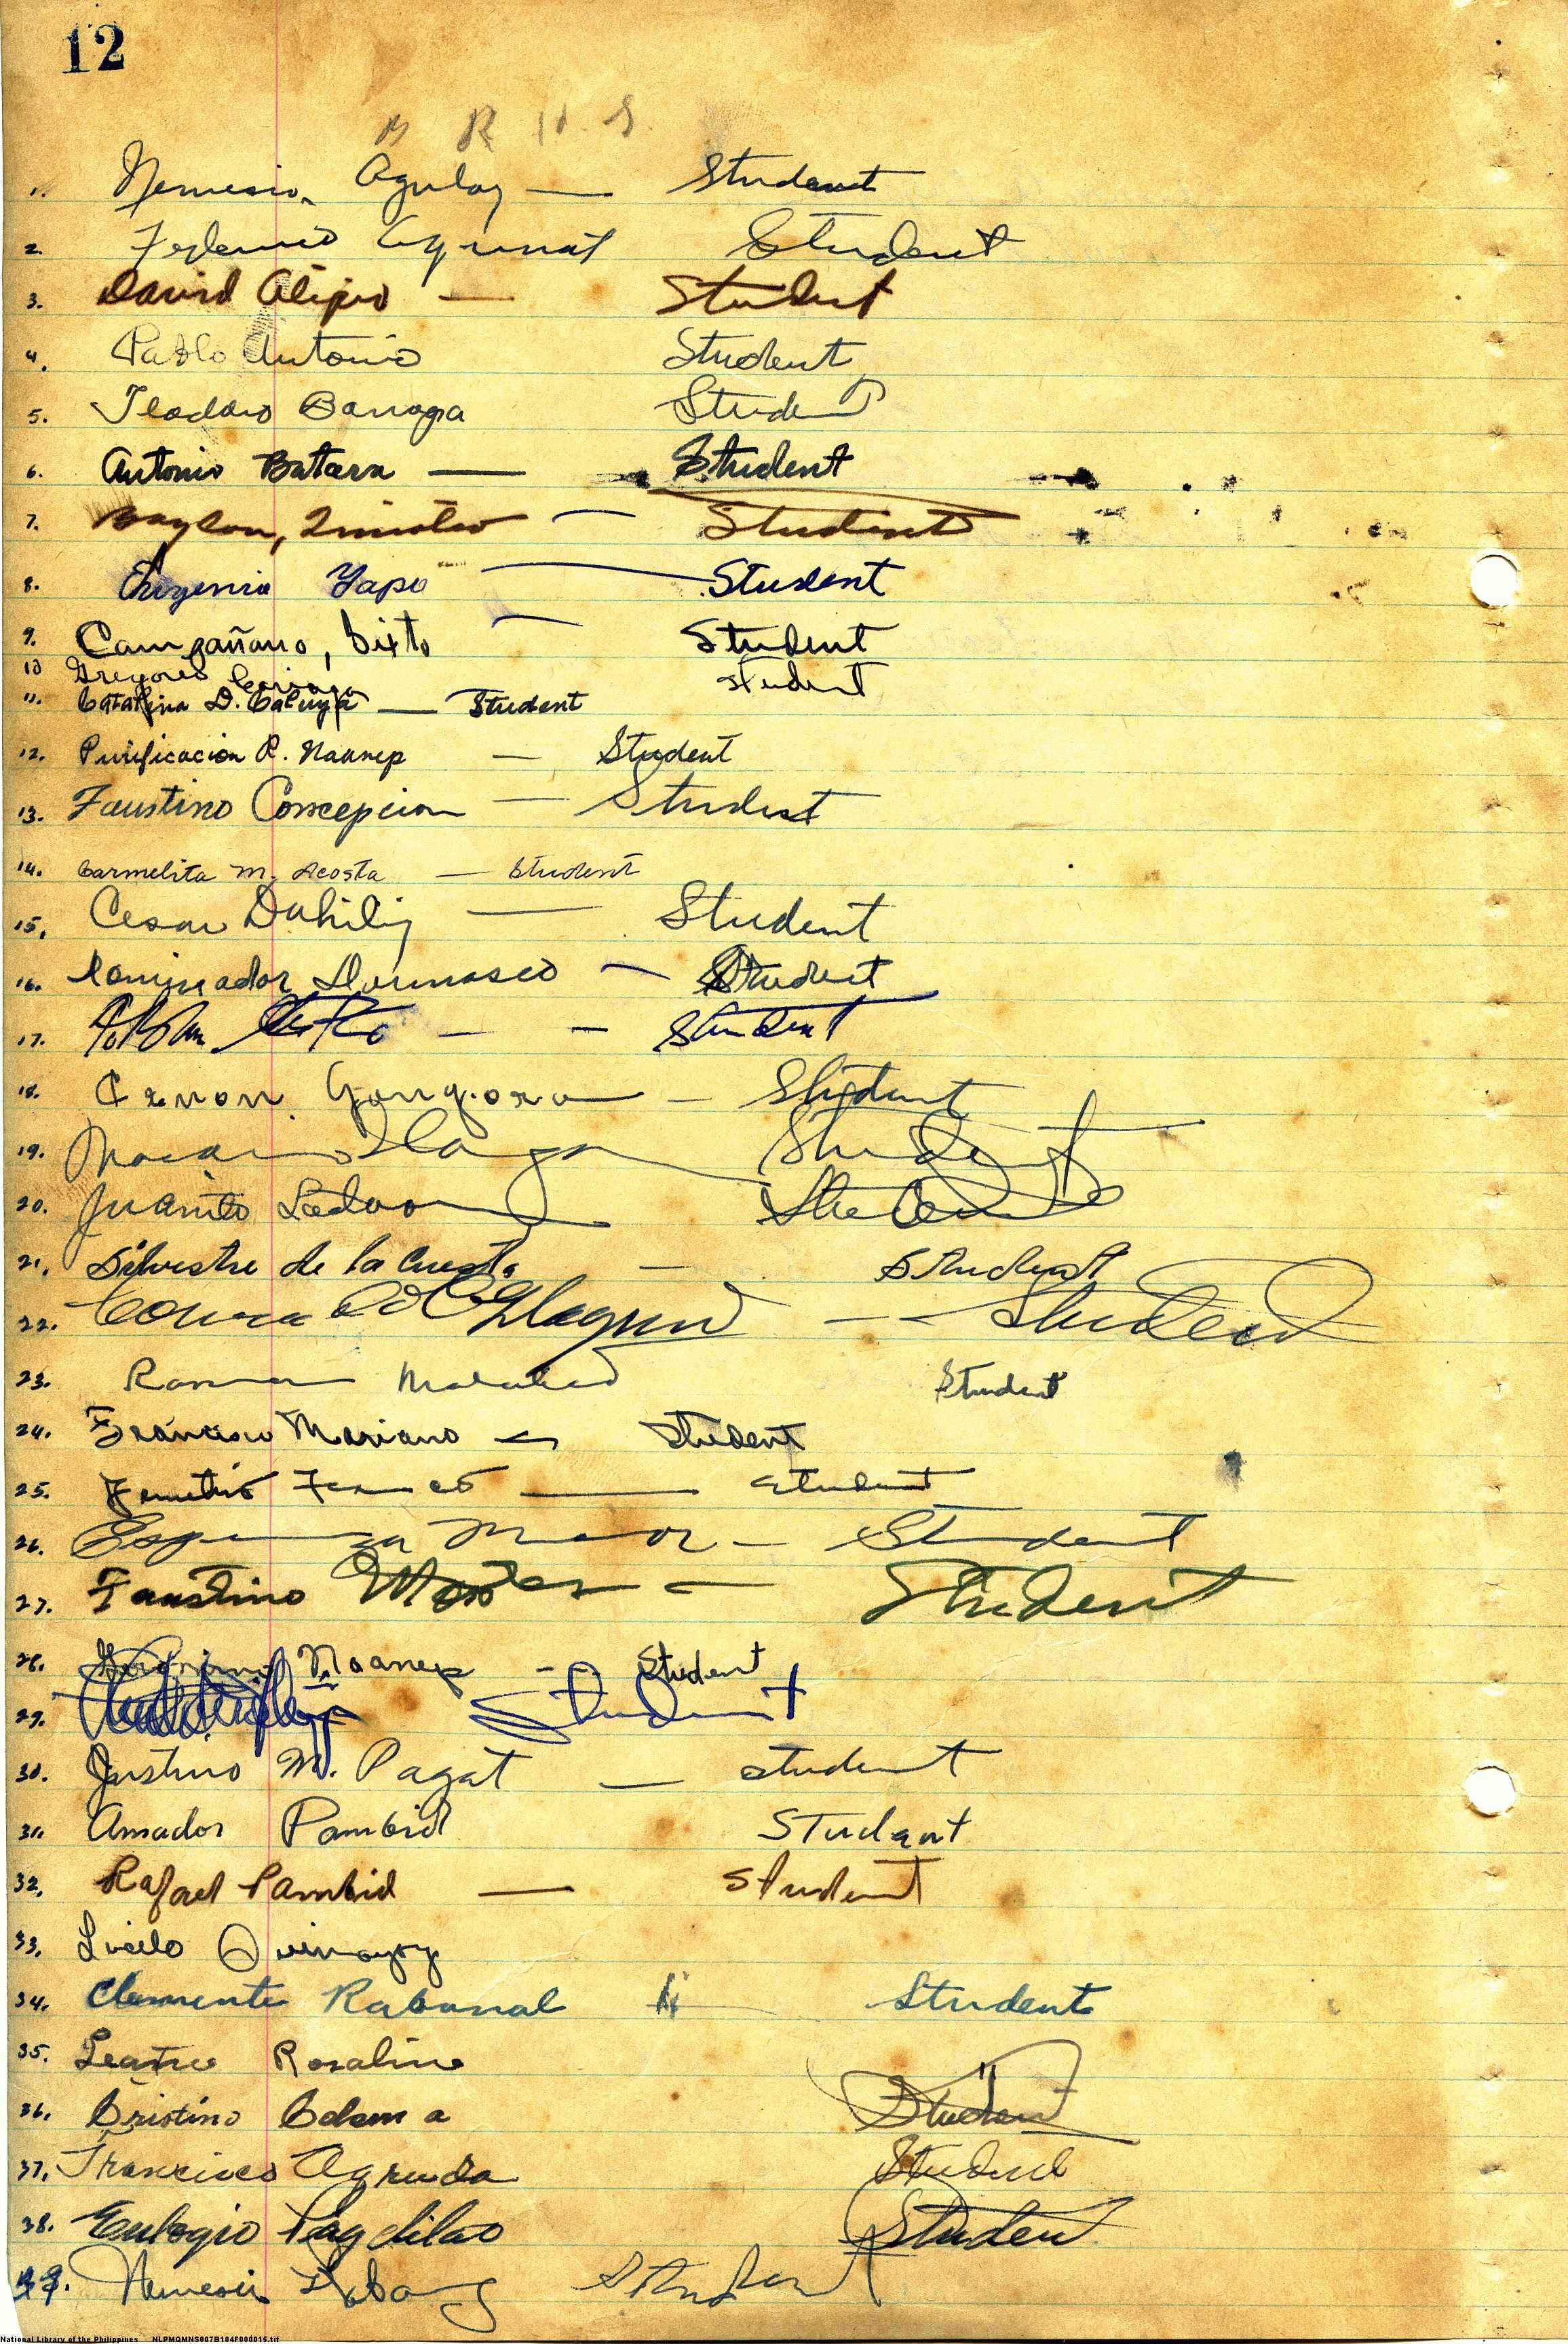 12
1. Nemesio Agulay — Student
2. Federico Student
3. David Alipio — Student
4. Pablo Antonio Student
5. Teodoro Barroga Student
6. Antonio Batara — Student
7. Baylon, Timoteo — Student
8. Yapo — Student
9. Campañano, Sixto — Student
10 Gregorio Student
11. Catalina D. Caluya — Student
12. Purificacion R. Naanep — Student
13. Faustino Concepcion — Student
14. Carmelita M. Acosta — Student
15. Cesar Dahilig — Student
16. Dominador Dumasco — Student
17. — — Student
18. Cenon Gongora — Student
19. Macario Ilagan Student
20. Juanito Ladao Student
21. Silvestre de la Cuesta — Student
22. — — Student
23. Student
24. Francisco Mariano — Student
25. — Student
26. — Student
27. Faustino — Student
28. Naanep — Student
29. Student
30. Justino M. Pagat — Student
31. Amador Pambid Student
32. Rafael Pambid — Student
33. Lucilo Quimoyog
34. Clemente Rabanal Student
35. Rosalino
36. Cristino Edema Student
37. Francisco Agruda Student
38. Eulogio Pagdilao Student
39. Nemesio Student
National Library of the Philippines NLPMQMNS007B104F000015.tif